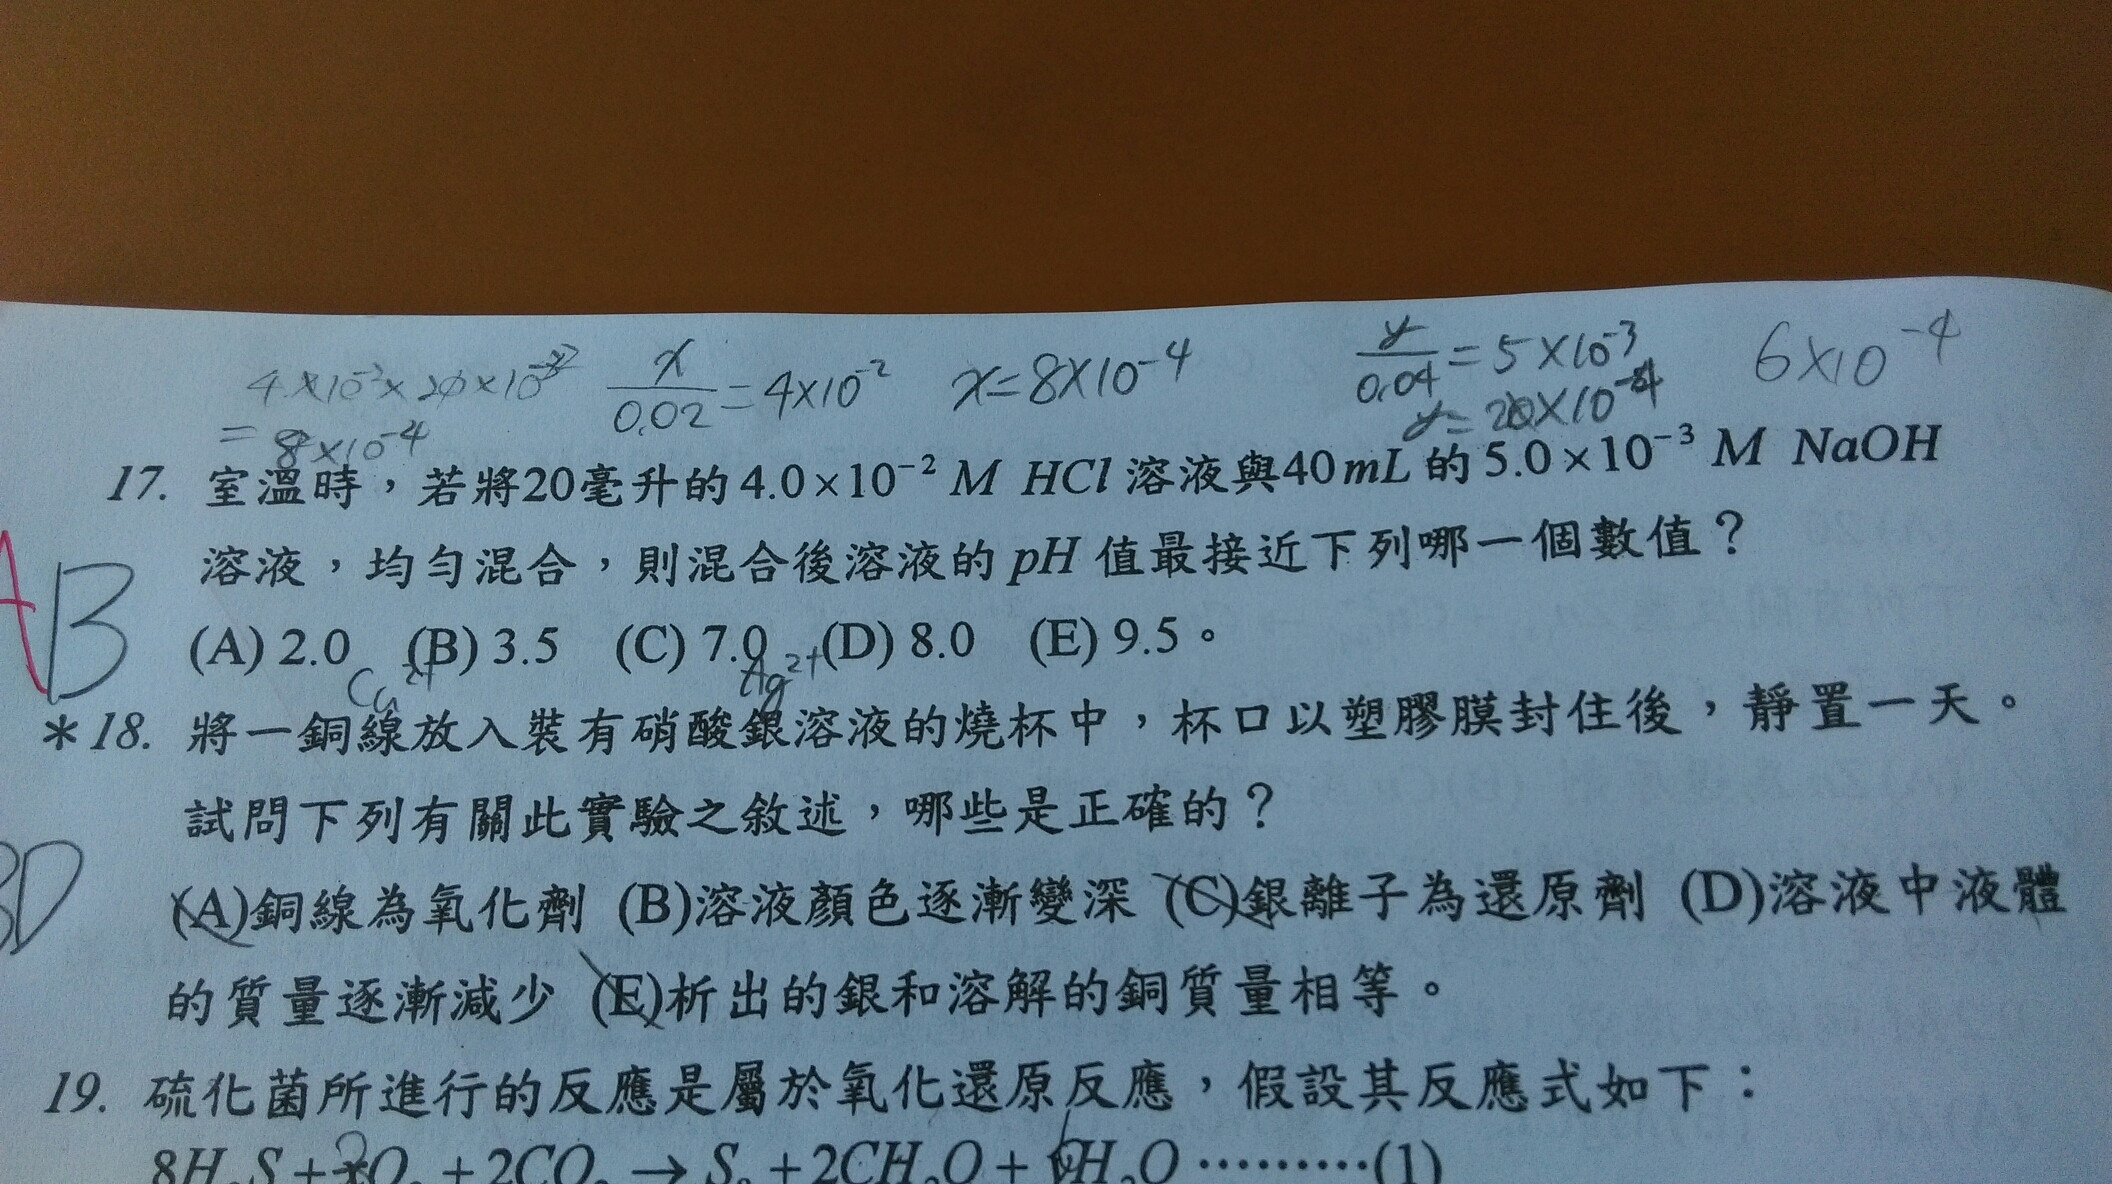 4×10⁻²×20×10⁻³
=8×10⁻⁴
x/0.02=4×10⁻² x=8×10⁻⁴
y/0.04=5×10⁻³
y=20×10⁻⁴
6×10⁻⁴
17. 室溫時，若將20毫升的4.0×10⁻² M HCl 溶液與40mL 的5.0×10⁻³ M NaOH
溶液，均勻混合，則混合後溶液的 pH 值最接近下列哪一個數值？
A B
(A) 2.0 (B) 3.5 (C) 7.0 (D) 8.0 (E) 9.5。
Cu²⁺ Ag²⁺
＊18. 將一銅線放入裝有硝酸銀溶液的燒杯中，杯口以塑膠膜封住後，靜置一天。
試問下列有關此實驗之敘述，哪些是正確的？
BD
(A)銅線為氧化劑 (B)溶液顏色逐漸變深 (C)銀離子為還原劑 (D)溶液中液體
的質量逐漸減少 (E)析出的銀和溶解的銅質量相等。
19. 硫化菌所進行的反應是屬於氧化還原反應，假設其反應式如下：
8H₂S + O₂ + 2CO₂ → S₈ + 2CH₂O + H₂O ………(1)